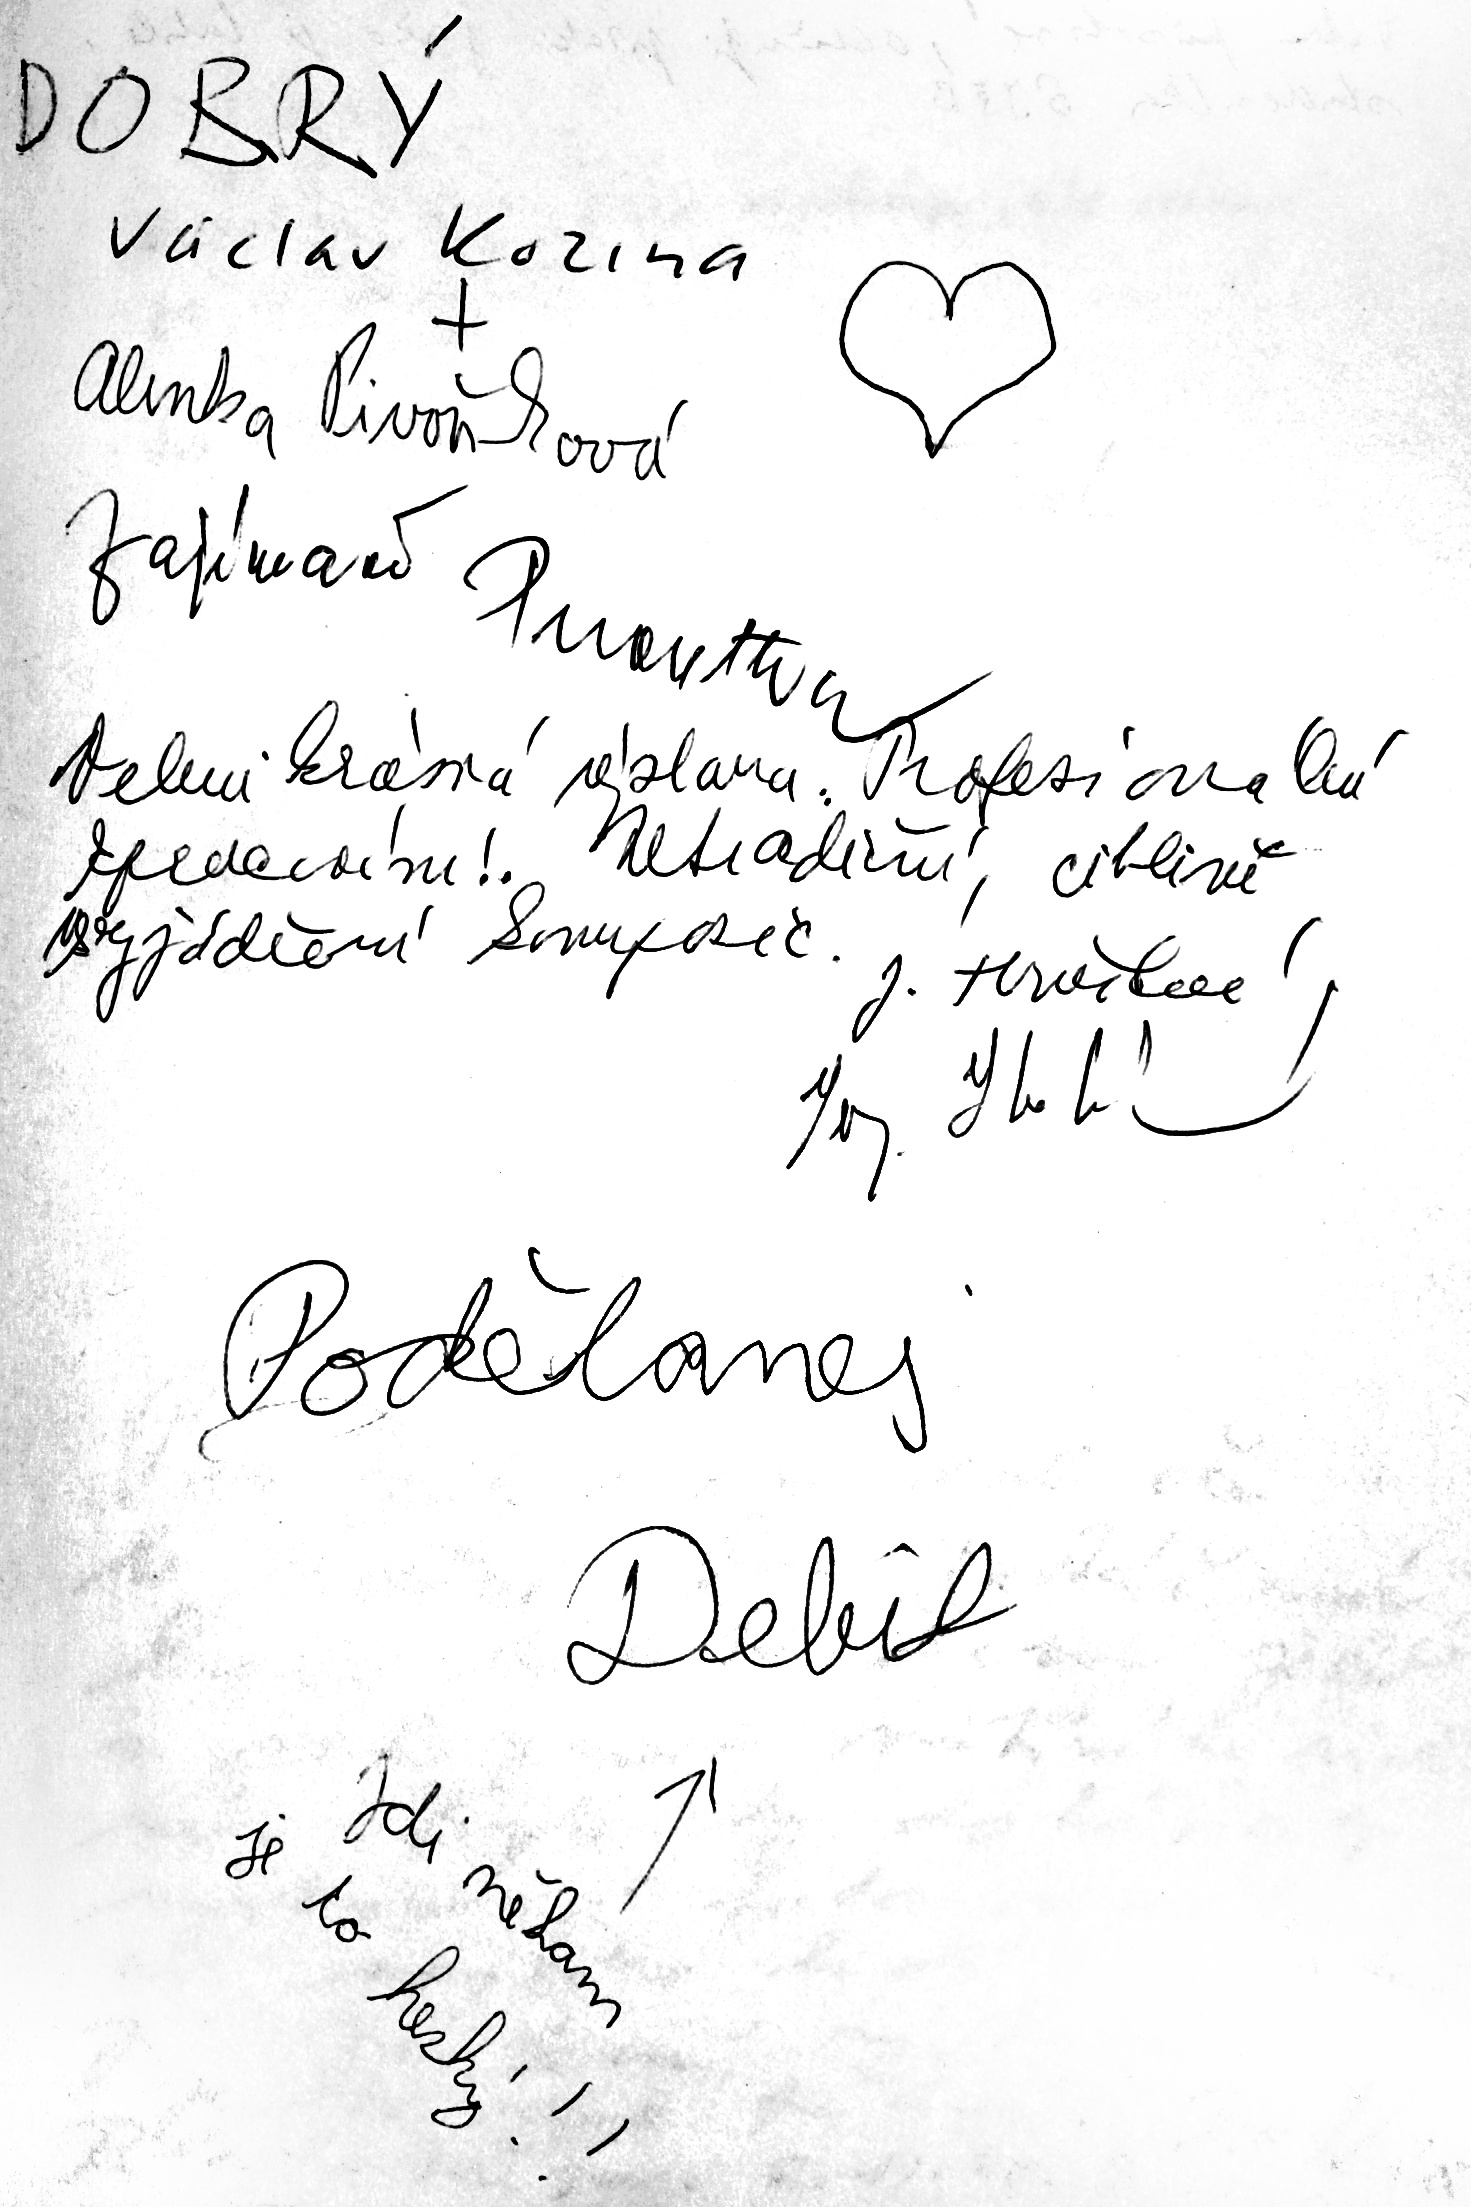 DOBRÝ
Václav Kozina
+
Alenka Pivoňková
Zajímavé
Velmi krásná výstava. Profesionální
zpracování!. Netradiční, citlivé
vyjádření kompozic.
J.
Ing.
Podělanej
Debil
Jdi někam
je to hezký!!!